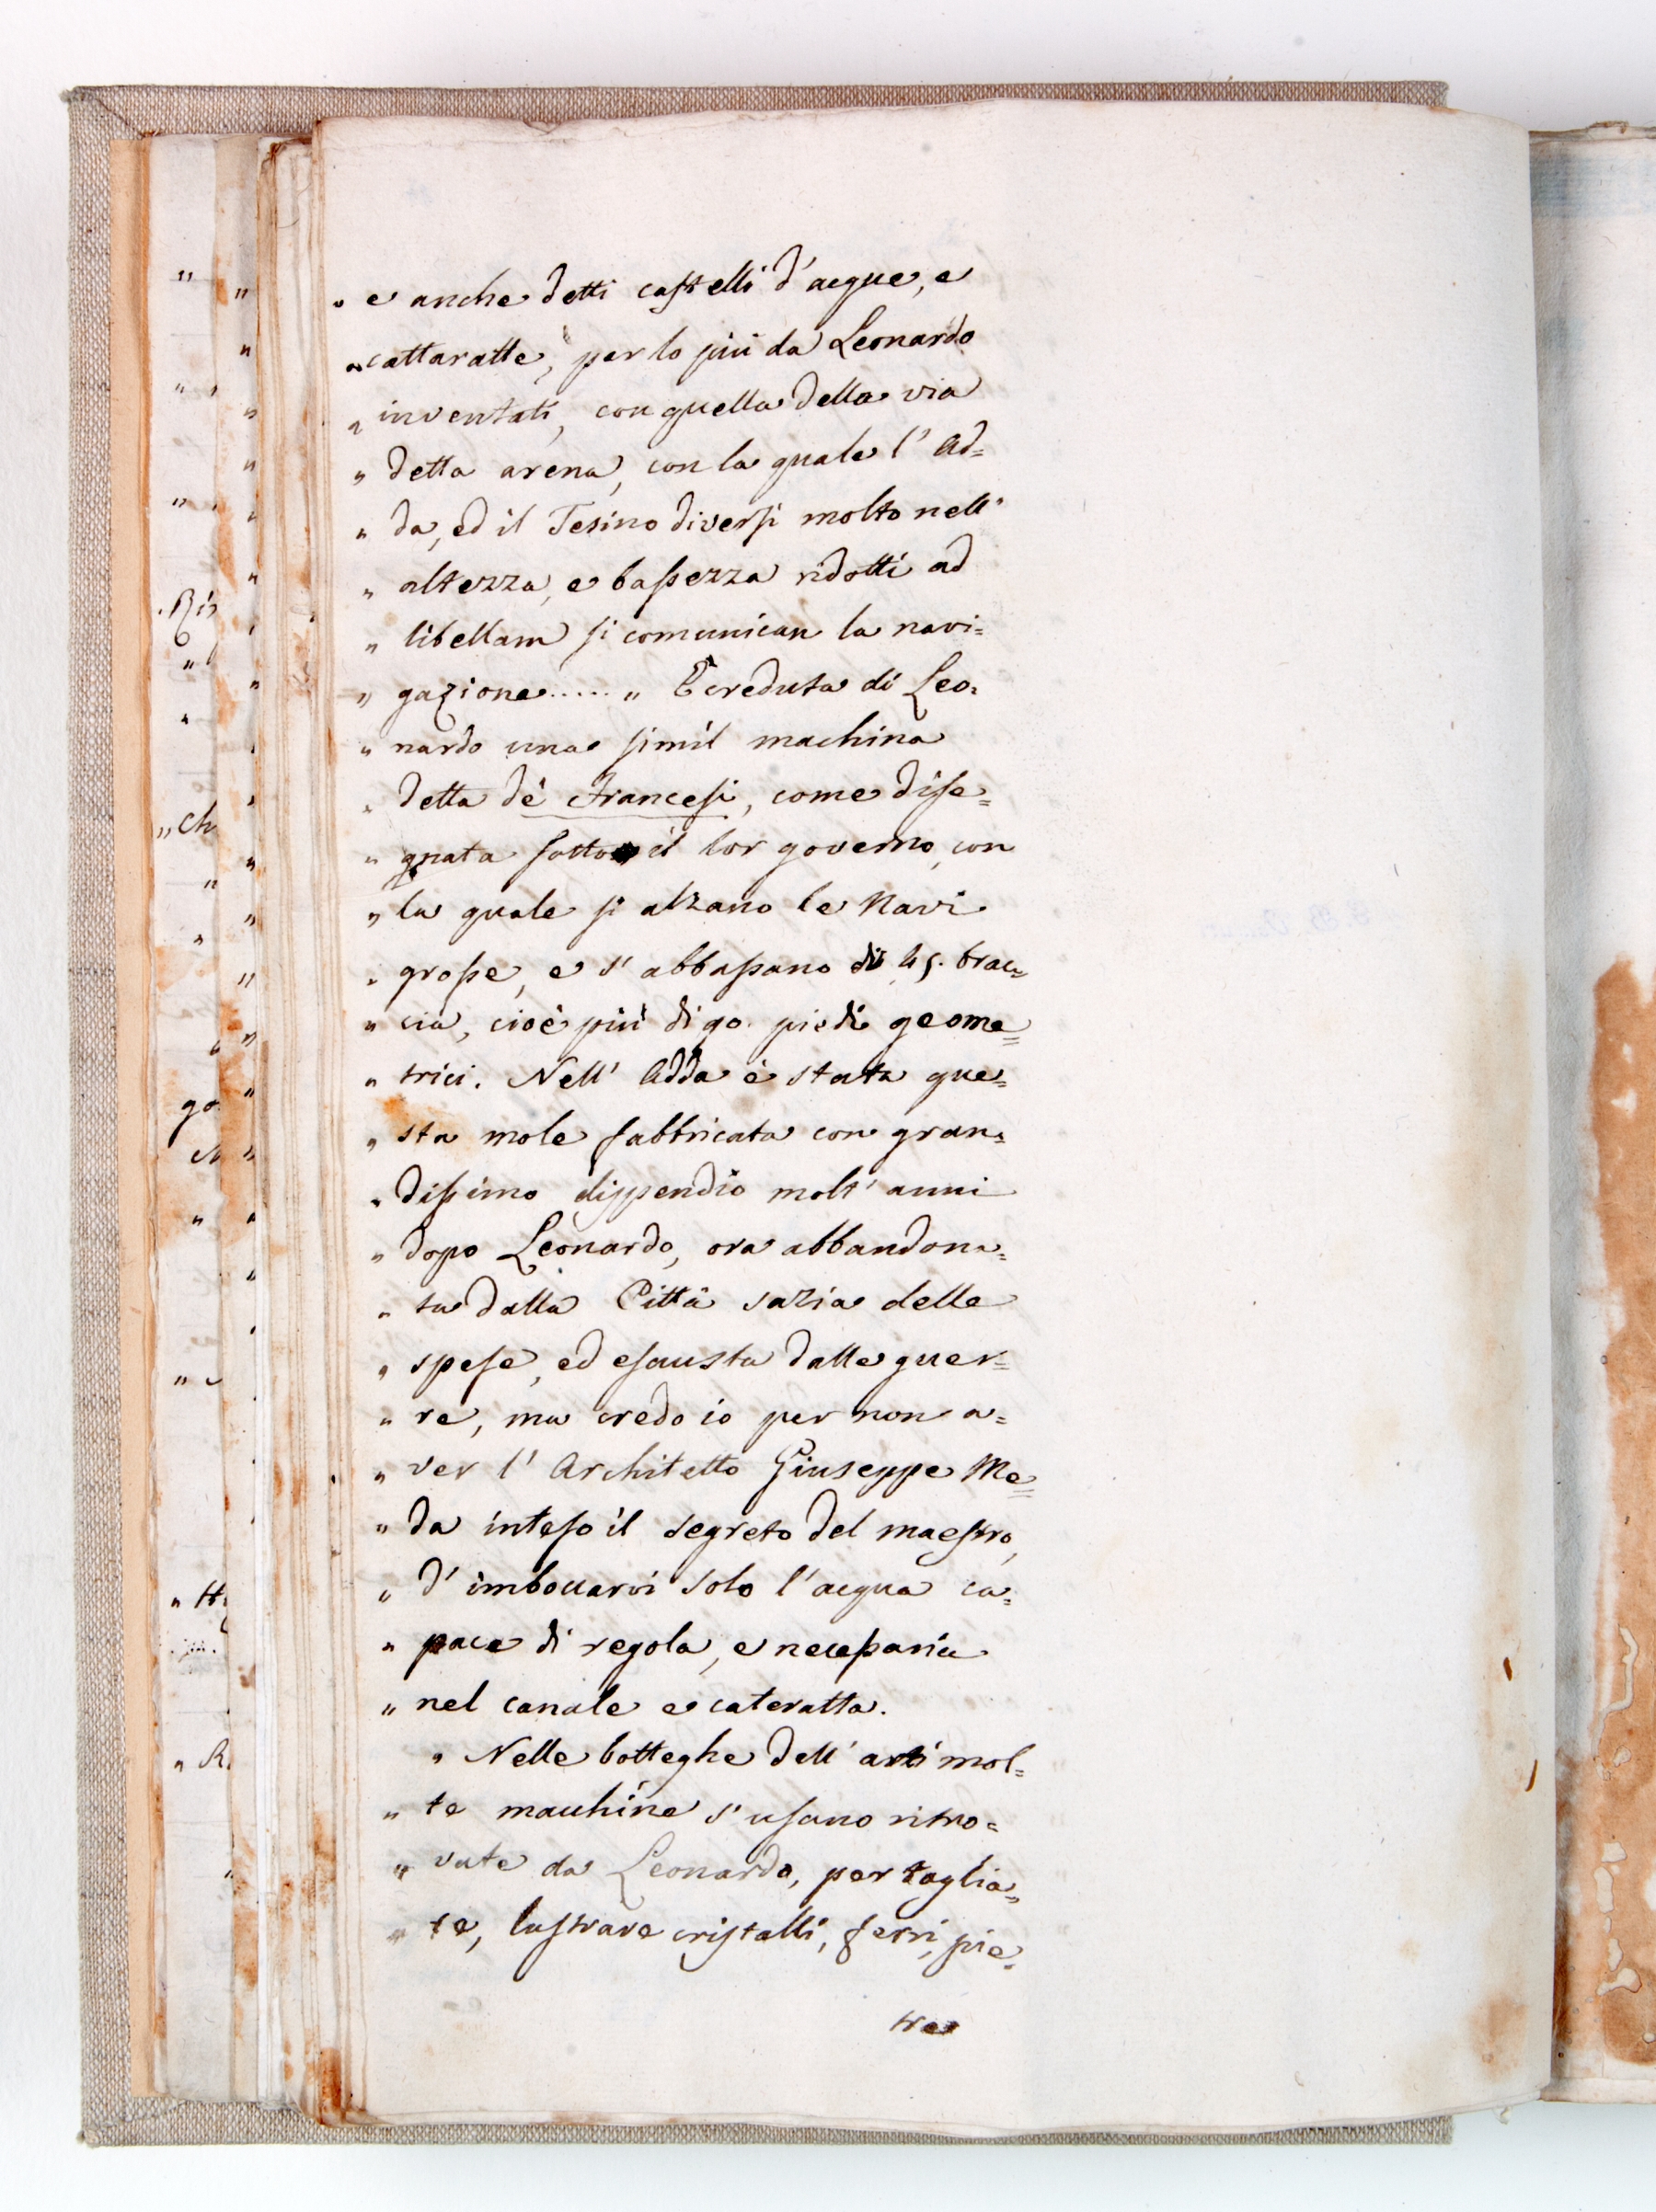 " e anche detti castelli d'acque, e
" cattaratte, per lo più da Leonardo
" inventati, con quella della via
" detta arena, con la quale l'Ad=
" da, ed il Tesino diversi molto nell'
" altezza, e bassezza ridotti ad
" libellam si comunican la navi=
" gazione ..... " È creduta di Leo=
" nardo una simil machina
" detta de' Francesi, come dise=
" gnata sotto il lor governo, con
" la quale si alzano le Navi
" grosse, e s'abbassano di 45. brac=
" cia, cioè più di 90. piedi geome=
" trici. Nell'Adda è stata que=
" sta mole fabbricata con gran=
" dissimo dispendio molt'anni
" dopo Leonardo, ora abbandona=
" ta dalla Città sazia delle
" spese, ed esausta dalle guer=
" re, ma credo io per non a=
" ver l'Architetto Giuseppe Me=
" da inteso il segreto del maestro,
" d'imboccarvi solo l'acqua ca=
" pace di regola, e necessaria
" nel canale e cateratta.
" Nelle botteghe dell'arti mol=
" te macchine s'usano ritro=
" vate da Leonardo, per taglia=
" re, lustrare cristalli, ferri, pie=
tre